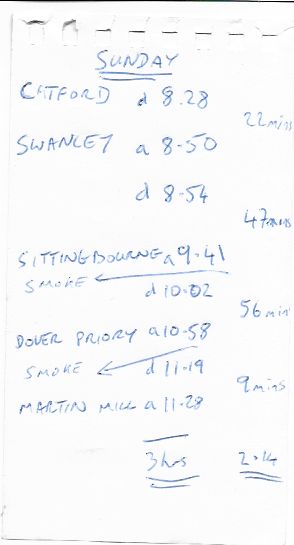 SUNDAY
CATFORD d 8.28
22 mins
SWANLEY a 8-50
d 8-54
47 mins
SITTINGBOURNE a 9-41
SMOKE
d 10-02
56 min
DOVER PRIORY a 10-58
SMOKE d 11-19
9 mins
MARTIN MILL a 11-28
3 hrs 2-14